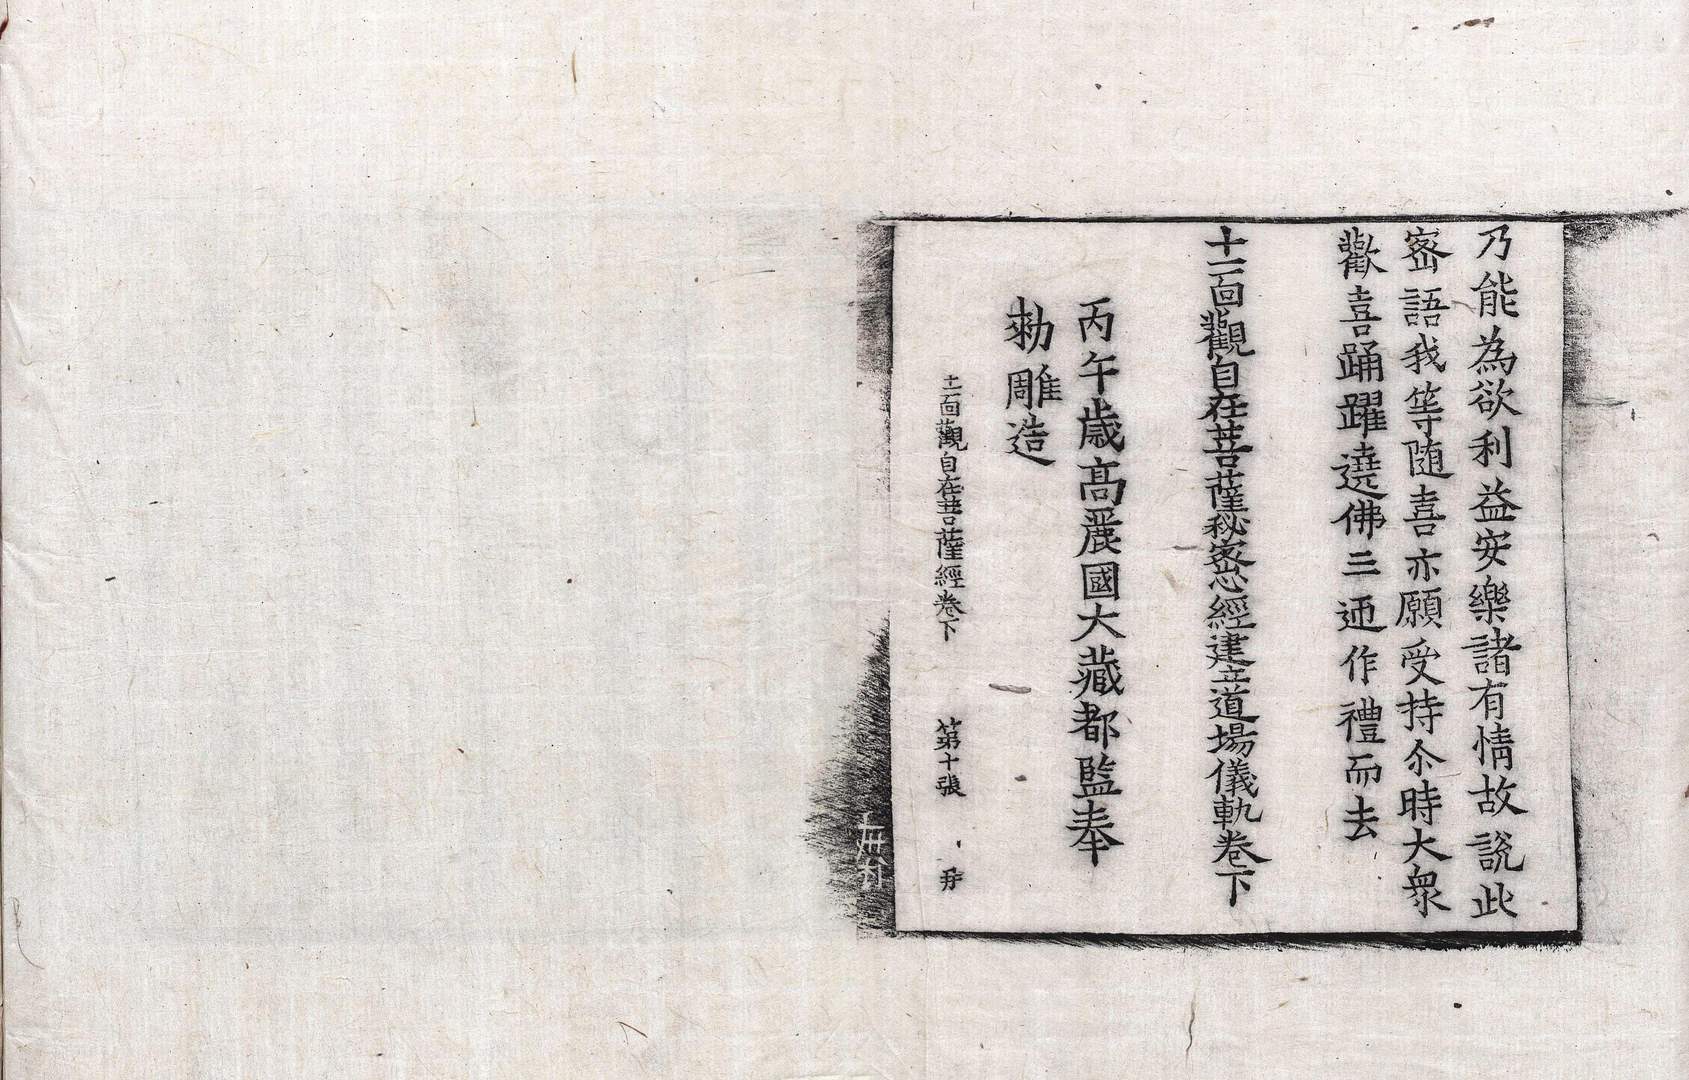 乃能為欲利益安樂諸有情故說此
密語我等随喜亦願受持尒時大衆
歡喜踊躍遶佛三迊作禮而去
十一面觀自在菩薩秘密心經建立道場儀軌卷下
丙午歲高麗國大藏都監奉
勑雕造
十一面觀自在菩薩經卷下 第十張